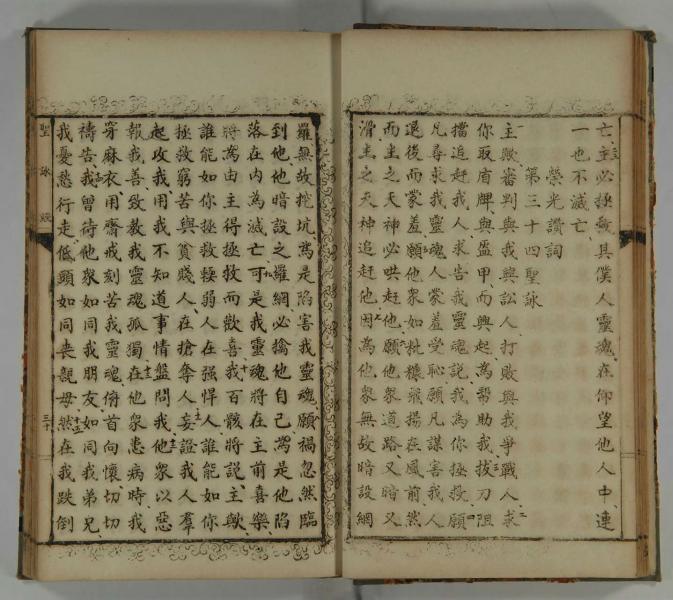 亡、主必拯救其僕人靈魂、在仰望他人中、連
一也不滅亡、
榮光讚詞
第三十四聖詠
主歟、審判與我興訟人、打敗與我爭戰人、求
你取盾牌、與盔甲、而興起為幫助我、拔刀阻
擋追赶我人、求告我靈魂說、我為你拯救、願
凡尋求我靈魂人蒙羞受恥、願凡謀害我人
退後而蒙羞、願他眾如粃糠飛揚在風前、然
而主之天神必哄赶他、願他眾道路又暗、又
滑、主之天神追赶他、因為他眾無故暗設網
羅、無故挖坑、為是陷害我靈魂、願禍忽然臨
到他、他暗設之羅網、必擒他自己、為是他陷
落在內為滅亡、可是我靈魂將在主前喜樂、
將為由主得拯救而歡喜、我百骸將說、主歟、
誰能如你、拯救輭弱人在强悍人、誰能如你
拯救窮苦與貧賤人、在搶奪人、妄證我人羣
起攻我、用我不知道事情盤問我、他眾以惡
報我善、致教我靈魂孤獨、在他眾患病時、我
穿麻衣、用齋戒刻苦我靈魂、俯首向懷切切
禱告、我曾待他眾如同我朋友、如同我弟兄、
我憂愁行走、低頭如同丧親母、然在我跌倒
聖詠經
三十